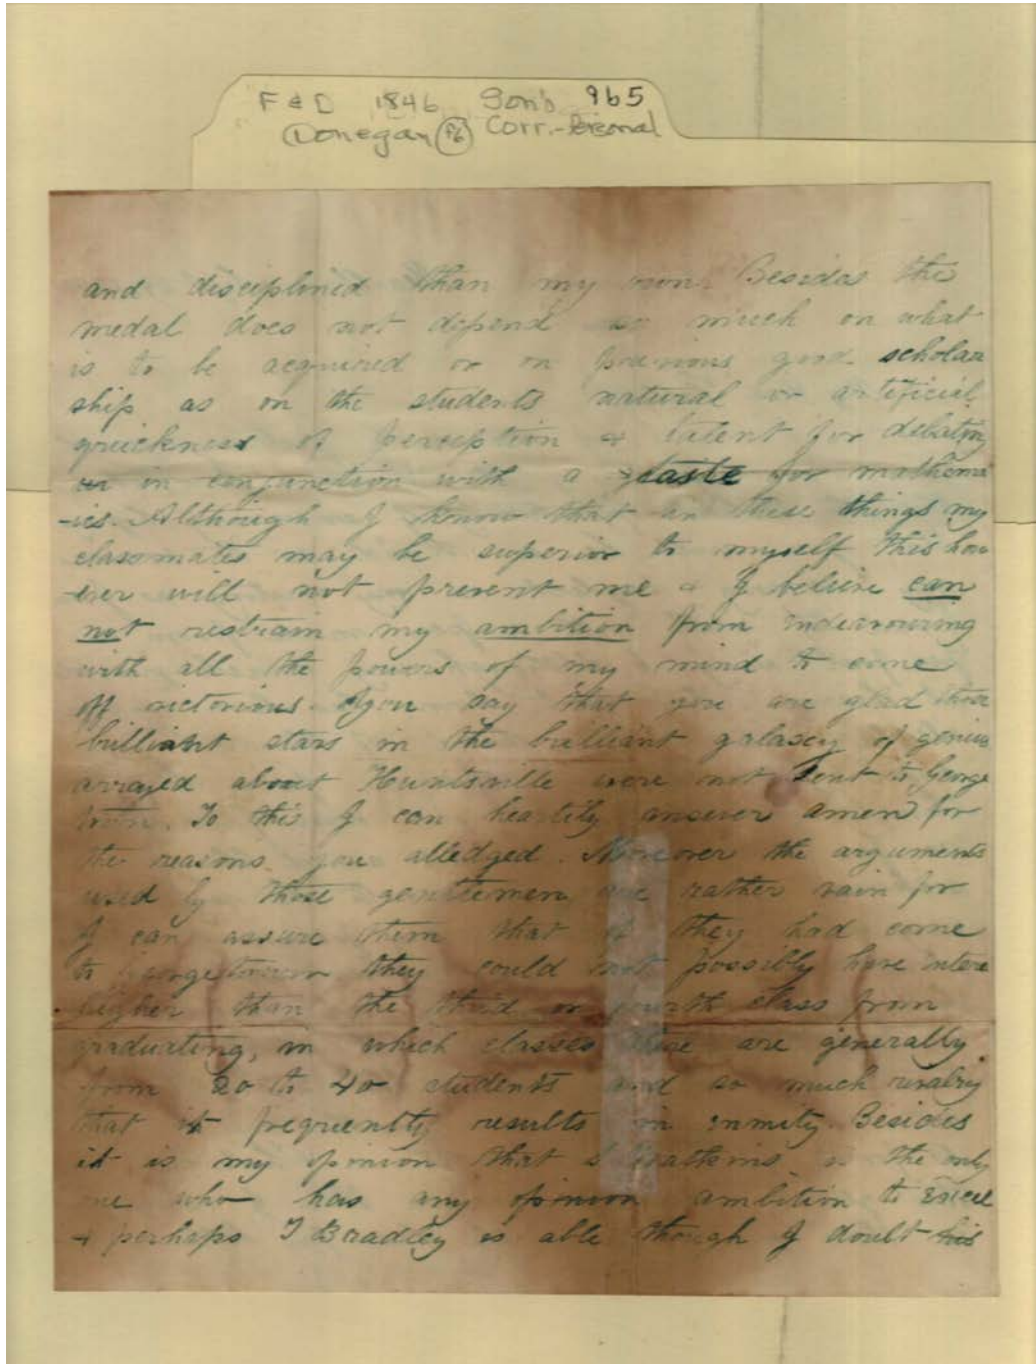 F & D 1846 Son's 965
Donegan F6 Corr.-Personal
and disciplined than my own. Besides the
medal does not depend so much on what
is to be acquired or on previous good scholar
ship as on the students natural or artificial
quickness of perception & talent for debating
or in conjunction with a taste for mathema
-ics. Although I know that in these things my
classmates may be superior to myself this how
-ever will not prevent me & I believe can
not restrain my ambition from indeavouring
with all the powers of my mind to come
off victorious. You say that you are glad those
brilliant stars in the brilliant galaxcy of genius
arrayed about Huntsville were not sent to George
town. To this I can heartily answer amen for
the reasons you alledged. Moreover the arguments
used by those gentlemen are rather vain for
I can assure them that if they had come
to Georgetown they could not possibly have intere
higher than the third or fourth class from
graduating, in which classes there are generally
from 20 to 40 students and so much rivalry
that it frequently results in inmity. Besides
it is my opinion that is the only
one who has any opinion ambition to excel
& perhaps J Bradley is able though I doubt his